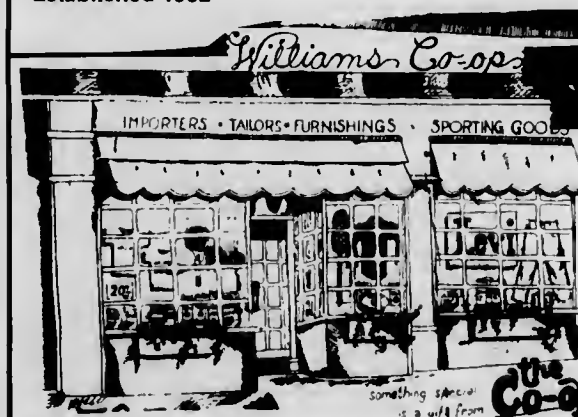 Williams Co-op
IMPORTERS • TAILORS • FURNISHINGS • SPORTING GOODS
20%
something special
is a gift from
the
Co-o